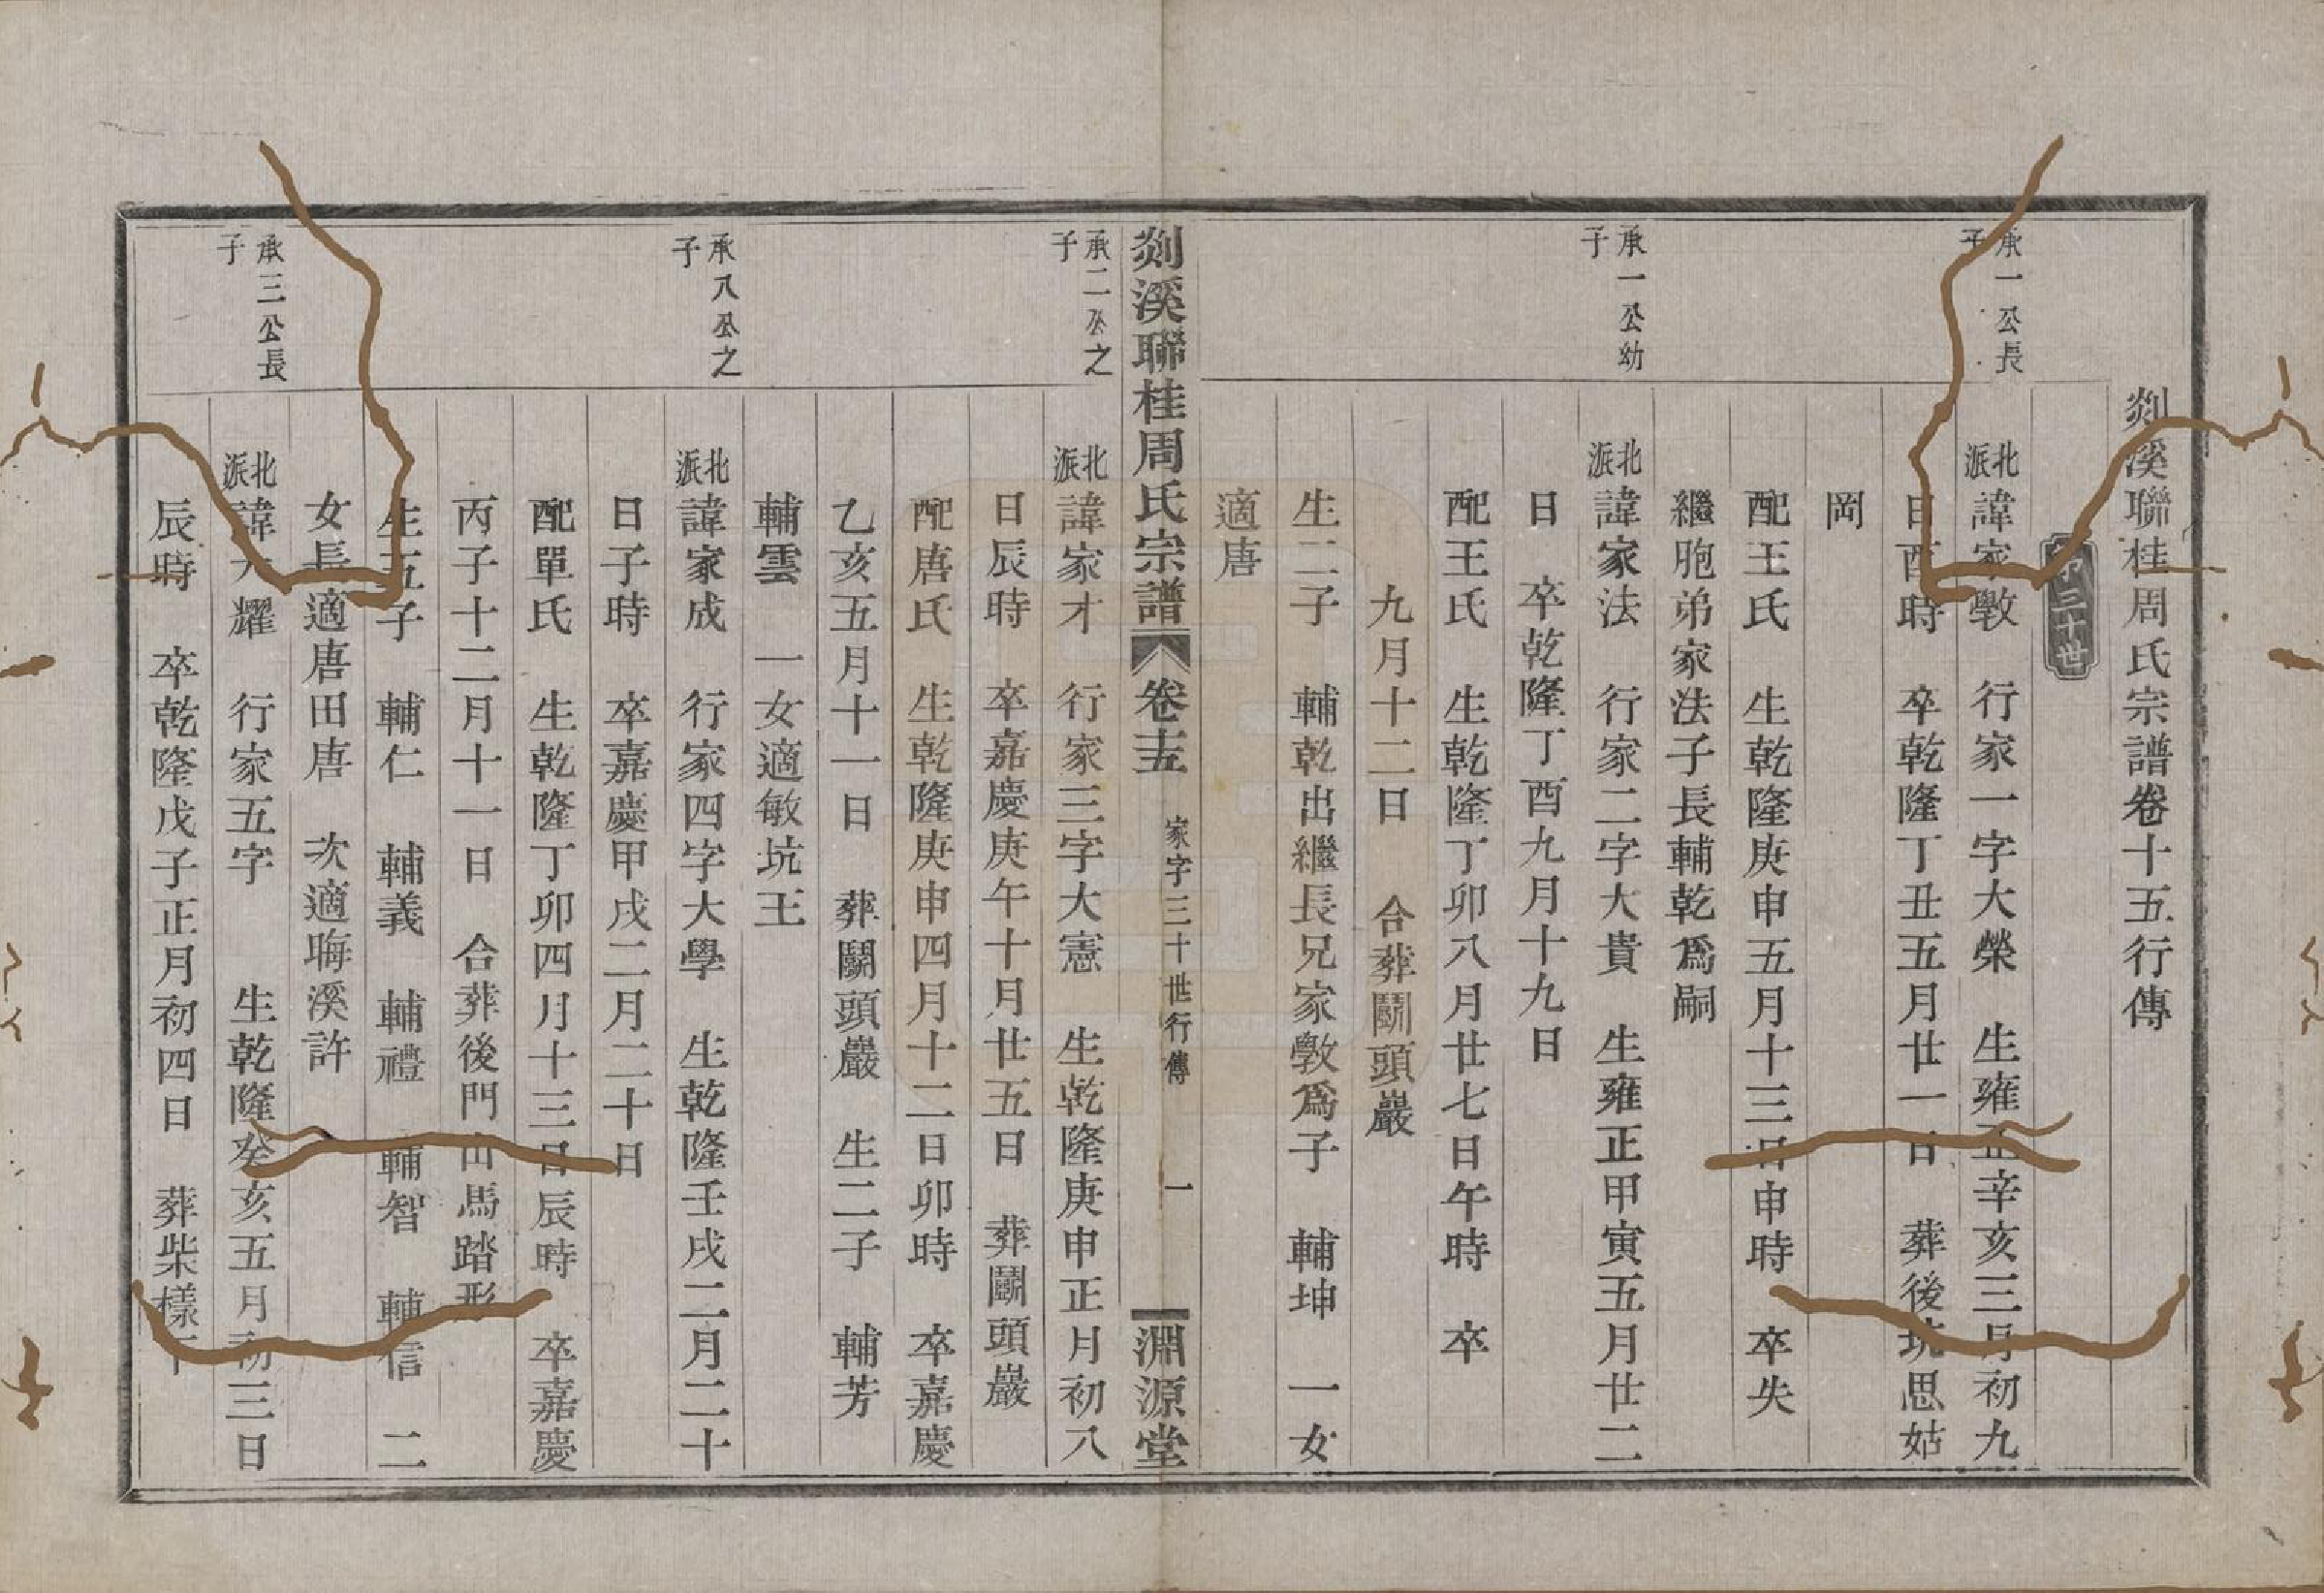 剡溪聯桂周氏宗譜卷十五行傳
第三十世
承一公長子
北派諱家斆　行家一字大榮　生雍正辛亥三月初九
日酉時　卒乾隆丁丑五月廿一日　葬後坑思姑
岡
配王氏　生乾隆庚申五月十三日申時　卒失
繼胞弟家法子長輔乾爲嗣
承一公幼子
北派諱家法　行家二字大貴　生雍正甲寅五月廿二
日　卒乾隆丁酉九月十九日
配王氏　生乾隆丁卯八月廿七日午時　卒
九月十二日　合葬鬭頭巖
生二子　輔乾出繼長兄家斆爲子　輔坤　一女
適唐
剡溪聯桂周氏宗譜　卷十五　家字三十世行傳　一　淵源堂
承二公之子
北派諱家才　行家三字大憲　生乾隆庚申正月初八
日辰時　卒嘉慶庚午十月廿五日　葬鬭頭巖
配唐氏　生乾隆庚申四月十二日卯時　卒嘉慶
乙亥五月十一日　葬鬭頭巖　生二子　輔芳
輔雲　一女適敏坑王
承八公之子
北派諱家成　行家四字大學　生乾隆壬戌二月二十
日子時　卒嘉慶甲戌二月二十日
配單氏　生乾隆丁卯四月十三日辰時　卒嘉慶
丙子十二月十一日　合葬後門山馬踏形
生五子　輔仁　輔義　輔禮　輔智　輔信　二
女長適唐田唐　次適晦溪許
承三公長子
北派諱大耀　行家五字　生乾隆癸亥五月初三日
辰時　卒乾隆戊子正月初四日　葬柴樣下